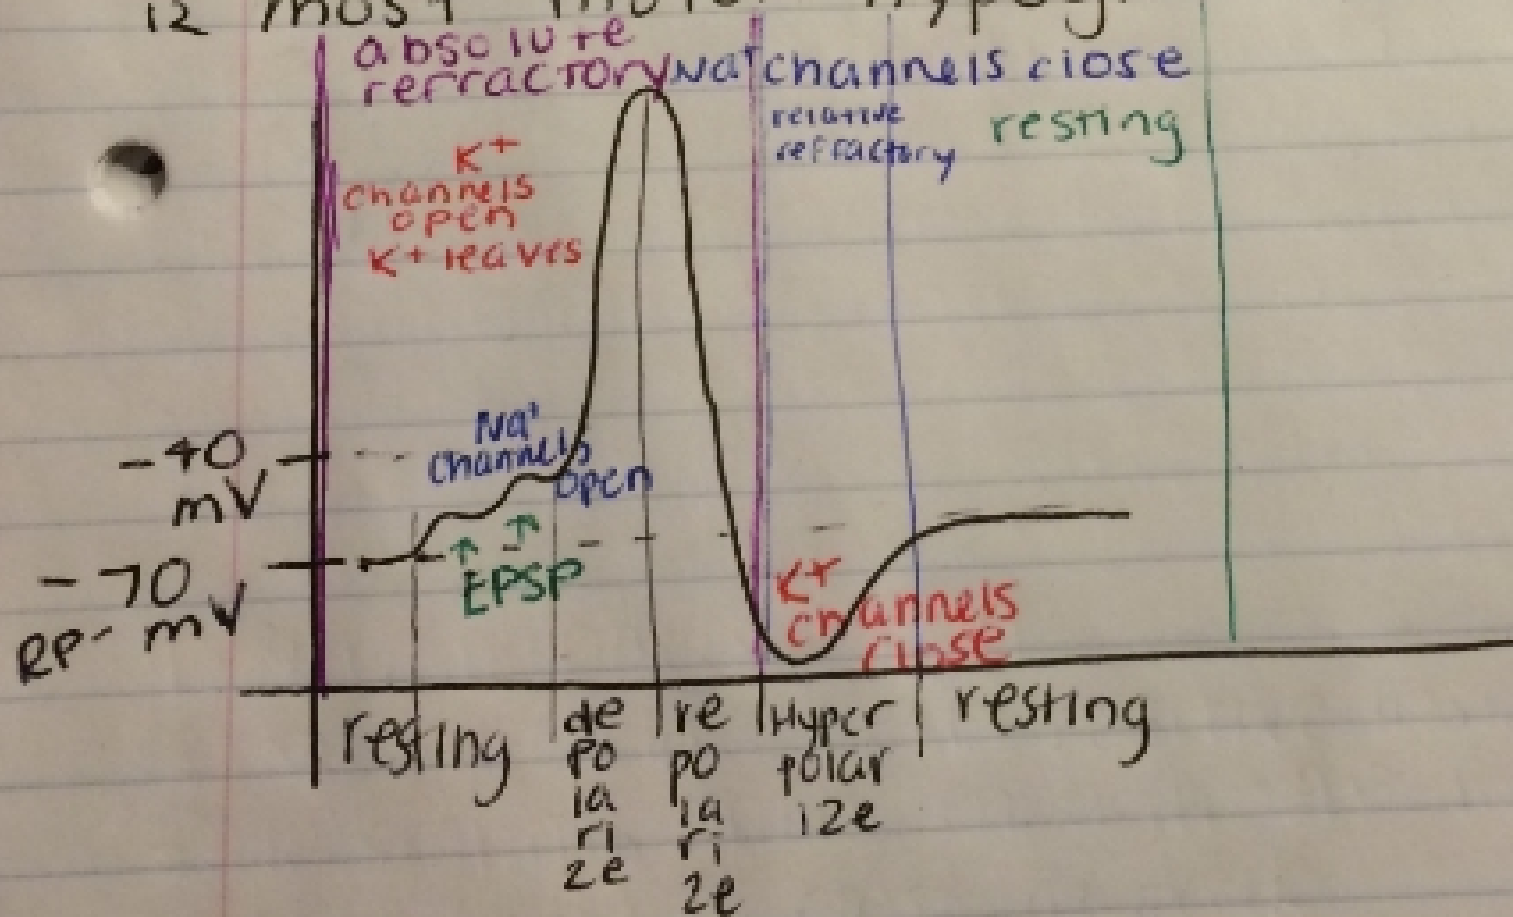 12 most motor hypog.
absolute
refractory Na+ channels close
relative
refractory
resting
K+
channels
open
K+ leaves
-40
mV
Na+
channels
open
-70
RP- mV
EPSP
K+
channels
close
resting
de
po
la
ri
ze
re
po
la
ri
ze
Hyper
polar
ize
resting